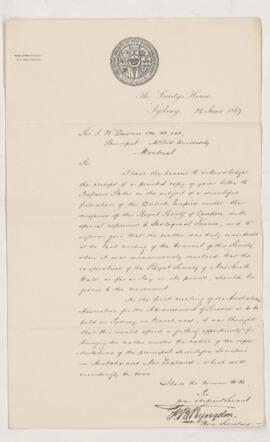 The Society's House
Sydney, 24 June 1887
Sir J. W. Dawson CMG, MA, LLD,
Principal McGill University
Montreal
Sir
I have the honour to acknowledge
the receipt of a printed copy of your letter to
Professor Stokes on the subject of a scientific
federation of the British Empire under the
auspices of the Royal Society of London, with
special reference to Geological Science, and to
inform you that the matter was duly considered
at the last meeting of the Council of this Society
when it was unanimously resolved that the
cooperation of the Royal Society of New South
Wales, as far as lay in its power, should be
given to the movement.
As the first meeting of the Australasian
Association for the Advancement of Science is to be
held in Sydney in next, it was thought
that this would afford a fitting opportunity for
bringing the matter under the notice of the repre-
sentatives of the principal Scientific Societies
in Australia and New Zealand, which will
accordingly be done.
I have the honour to be
Sir
Your obedient servant
F. B. Kyngdon
Hon. Secretary